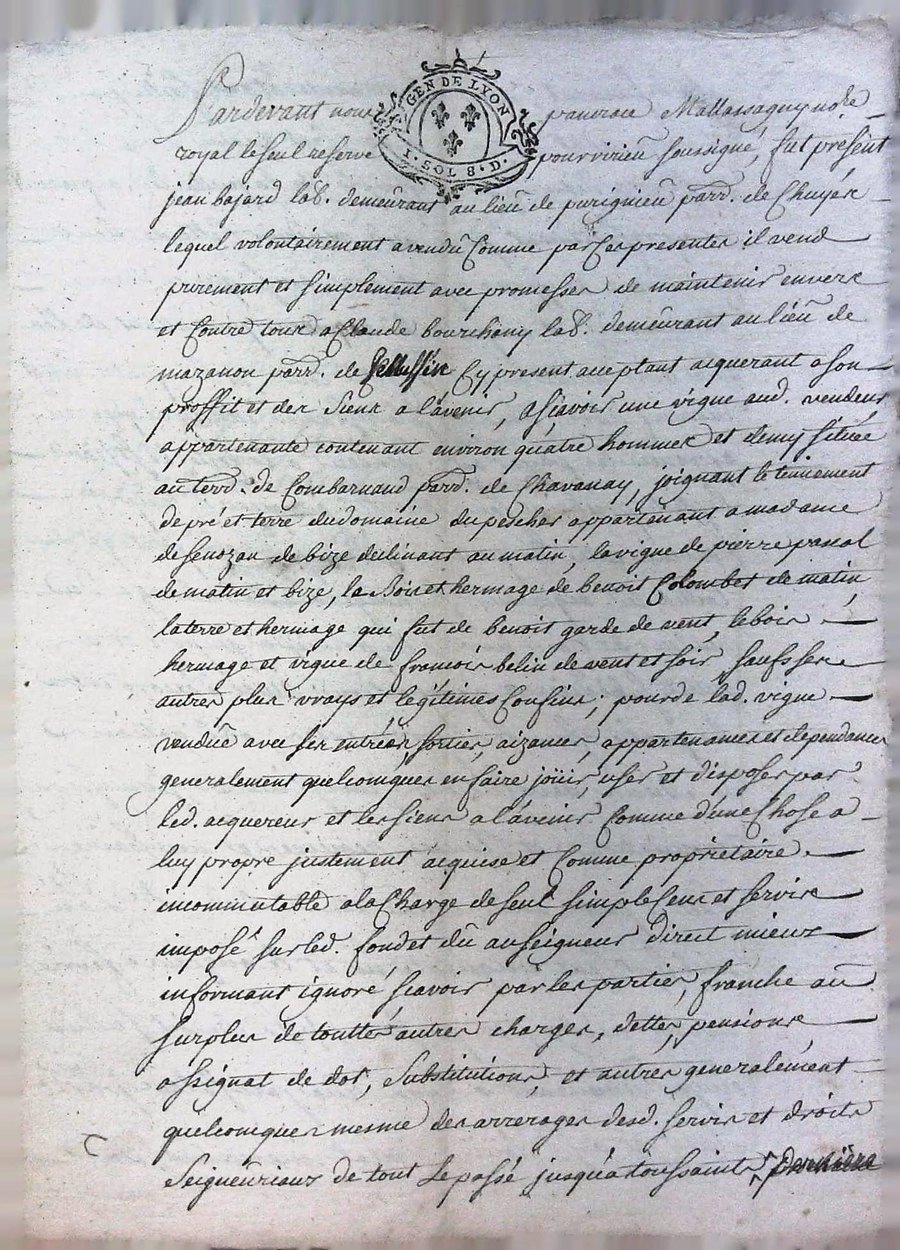 GEN DE LYON
1 · SOL 8 · D ·
Pardevant nous françois Mallassagny no.re
royal le seul reservé pour virieu soussigné, fut présent
jean bajard lab. demeurant au lieu de purignieu parr. de Chuyér
lequel volontairement a vendu Comme par Ces presentes il vend
purement et simplement avec promesses de maintenir envers
et Contre tous a Claude bourchany lab. demeurant au lieu de
mazanon parr. de Pellussin Cy present acceptant acquerant a son
proffit et des siens a l'avenir, a sçavoir une vigne aud. vendeur
appartenante contenant environ quatre hommes et demy située
au terr. de Combarnaud parr. de Chavanay, joignant le tennement
de pré et terre du domaine du pescher appartenant a madame
de senozan de bize declinant au matin, la vigne de pierre pascal
de matin et bize, le Bois et hermage de benoit Colombet de matin,
la terre et hermage qui fut de benoit garde de vent, le bois
hermage et vigne de francois belin de vent et soir saufs ses
autres plus vrays et legitimes Confins; pour de lad. vigne
vendüe avec ses entrées, sorties, aizances, appartenances et dependances
generalement quelconques en faire joüir, user et disposer par
led. acquereur et les siens a l'avenir Comme d'une Chose a
luy propre justement acquise et Comme proprietaire
incommutable a la Charge de seul simple sens et servis
imposé sur led. fond et dû au seigneur direct mieux
informant ignoré sçavoir par les parties, franche au
surplus de touttes autres charges, dettes, pensions
assignat de dot, substitutions, et autres generalement
quelconques mesme des arrerages desd. servis et droits
Seigneuriaux de tout le passé jusqu'a toussaints derniere